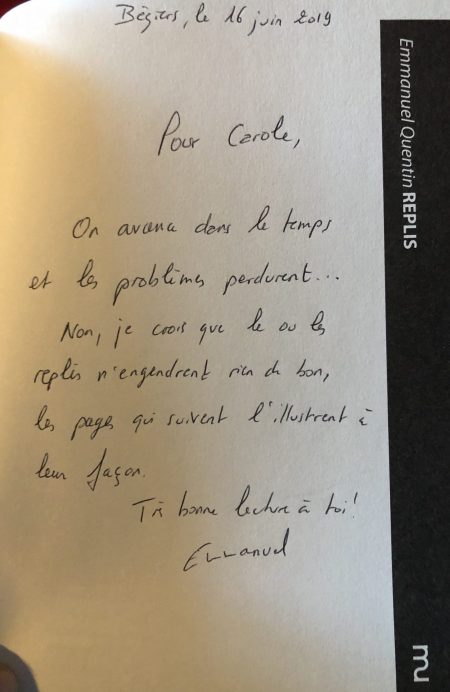 Béziers, le 16 juin 2019
Pour Carole,
On avance dans le temps
et les problèmes perdurent...
Non, je crois que le ou les
replis n'engendrent rien de bon,
les pages qui suivent l'illustrent à
leur façon.
Très bonne lecture à toi!
Emmanuel
Emmanuel Quentin REPLIS
mu